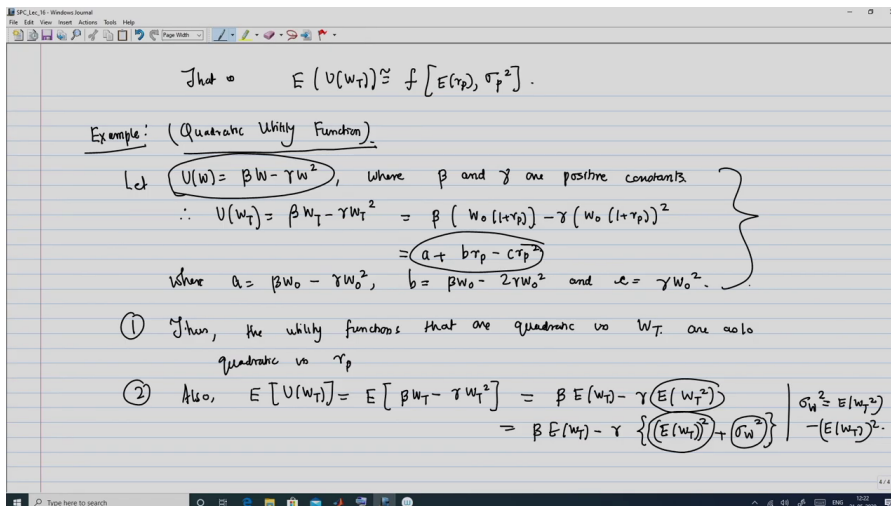 SPC_Lec_16 - Windows Journal
File Edit View Insert Actions Tools Help
Page Width
That is E (U(W_T)) ≅ f [E(r_p), σ_p²].
Example: (Quadratic Utility Function).
Let U(W) = βW - γW², where β and γ are positive constants.
∴ U(W_T) = βW_T - γW_T² = β (W_0 (1+r_p)) - γ (W_0 (1+r_p))²
= a + br_p - cr_p²
where a = βW_0 - γW_0², b = βW_0 - 2γW_0² and c = γW_0².
① Thus, the utility functions that are quadratic in W_T are also
quadratic in r_p
② Also, E [U(W_T)] = E [βW_T - γW_T²] = β E(W_T) - γ (E(W_T²))
= β E(W_T) - γ {(E(W_T))² + σ_W²} | σ_W² = E(W_T²)
-(E(W_T))².
4/4
Type here to search
ENG
12:22